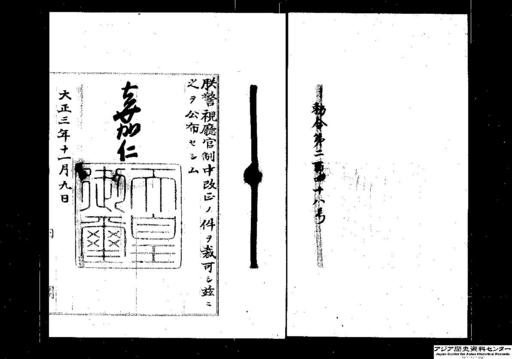 勅令第二百四十八号
朕警視廳官制中改正ノ件ヲ裁可シ茲ニ
之ヲ公布セシム
嘉仁
天皇
御璽
大正三年十一月九日
アジア歴史資料センター
Japan Center for Asian Historical Records